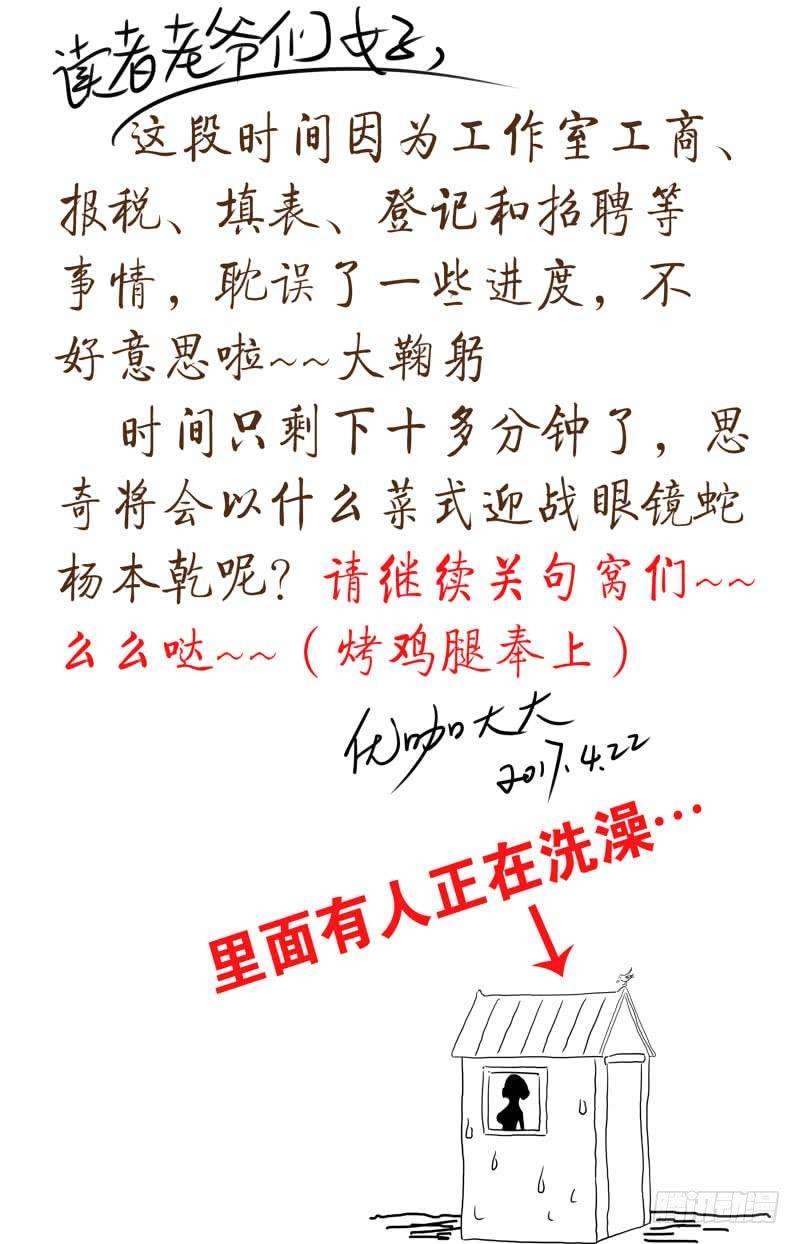 读者老爷们好，
这段时间因为工作室工商、
报税、填表、登记和招聘等
事情，耽误了一些进度，不
好意思啦~~大鞠躬
时间只剩下十多分钟了，思
奇将会以什么菜式迎战眼镜蛇
杨本乾呢？请继续关句窝们~~
么么哒~~（烤鸡腿奉上）
优咖大大
2017.4.22
里面有人正在洗澡…
腾讯动漫